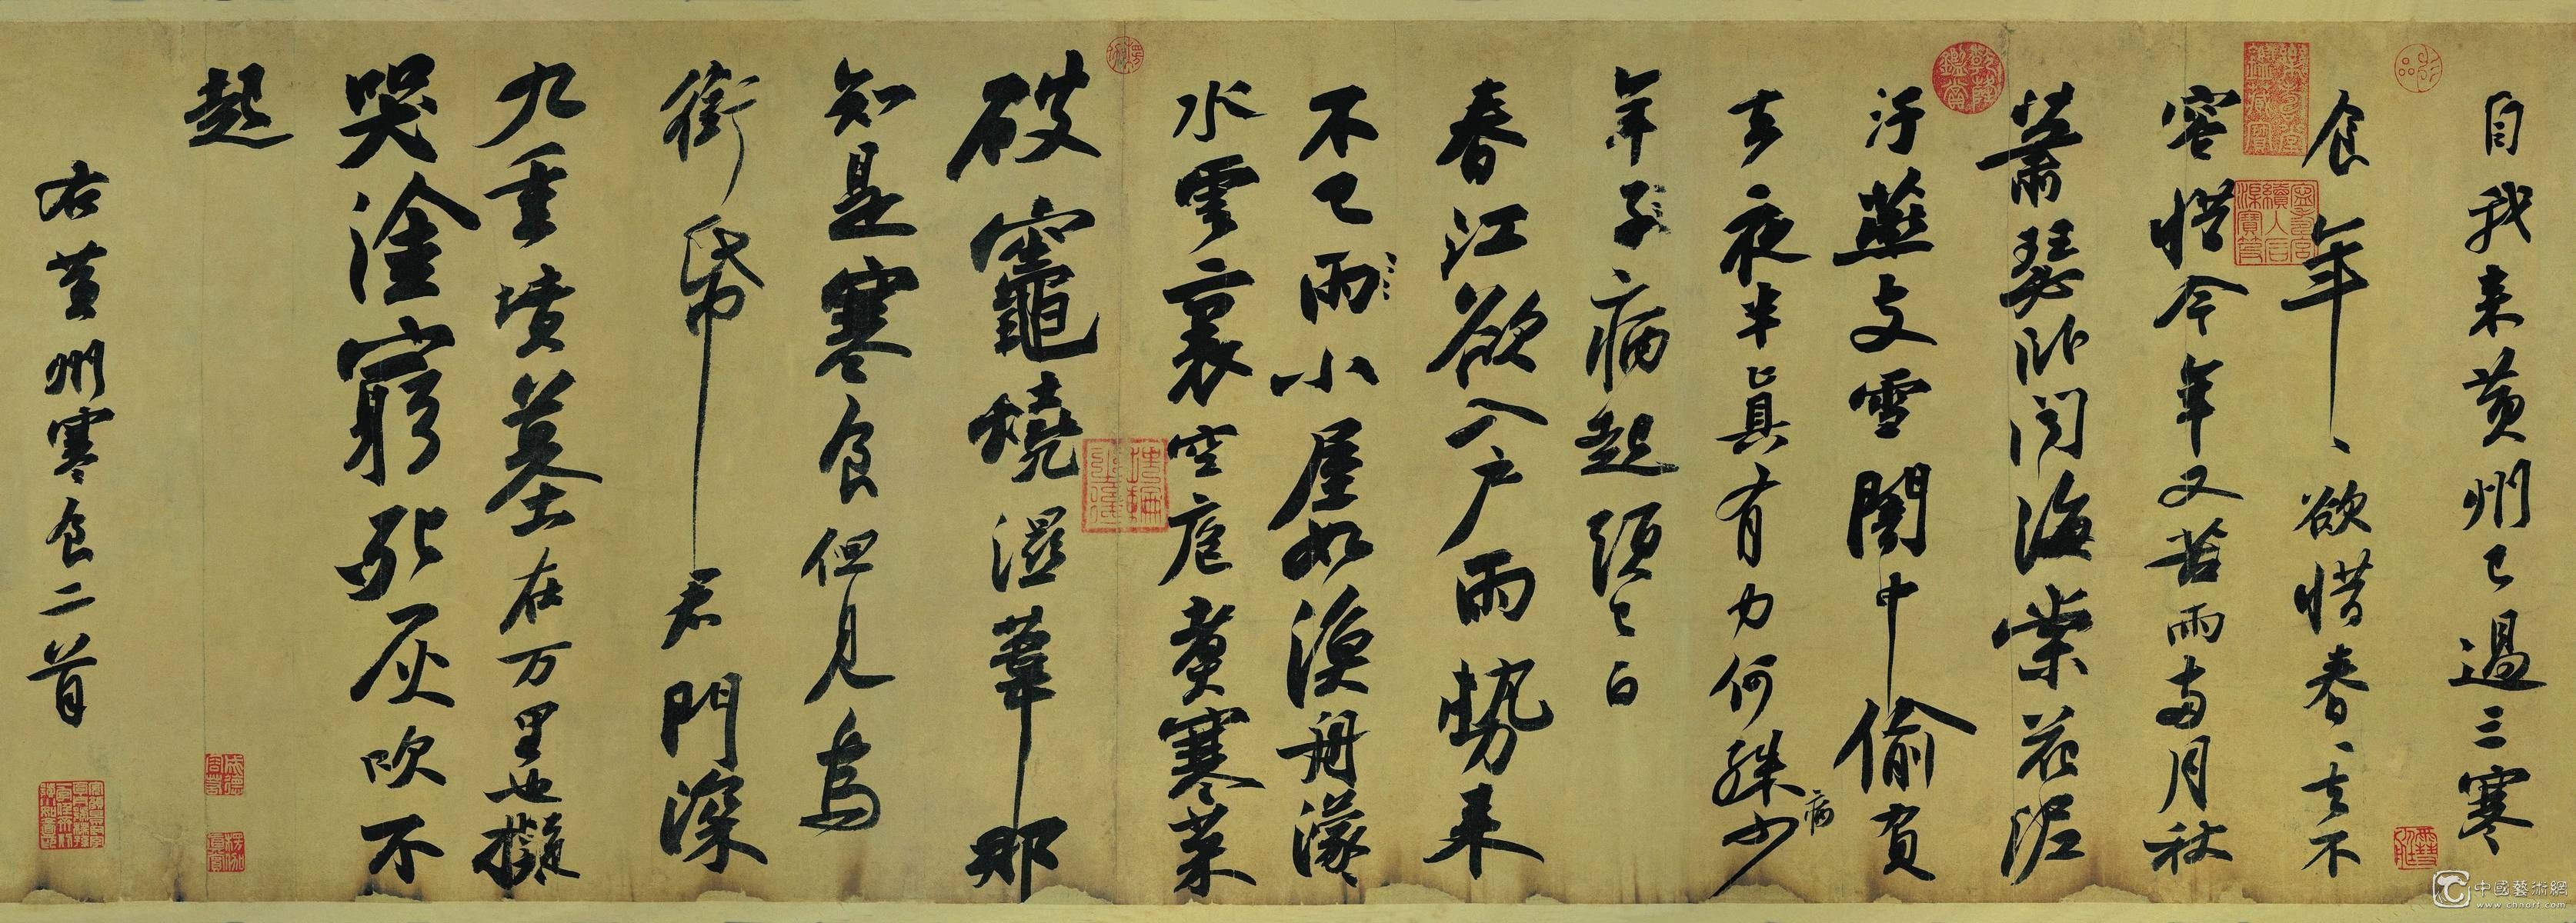 自我来黄州已過三寒
食年、欲惜春、去不
容惜今年又苦雨兩月秋
蕭瑟卧聞海棠花泥
汙燕支雪闇中偷負
去夜半真有力何殊少
病
年子病起頭已白
春江欲入户雨勢来
不已雨小屋如漁舟濛
水雲裏空庖煑寒菜
破竈燒濕葦那
知是寒食但見烏
銜帋君門深
九重墳墓在万里也擬
哭塗窮死灰吹不
起
右黄州寒食二首
乾隆鑑賞
中國藝術網
www.chnart.com